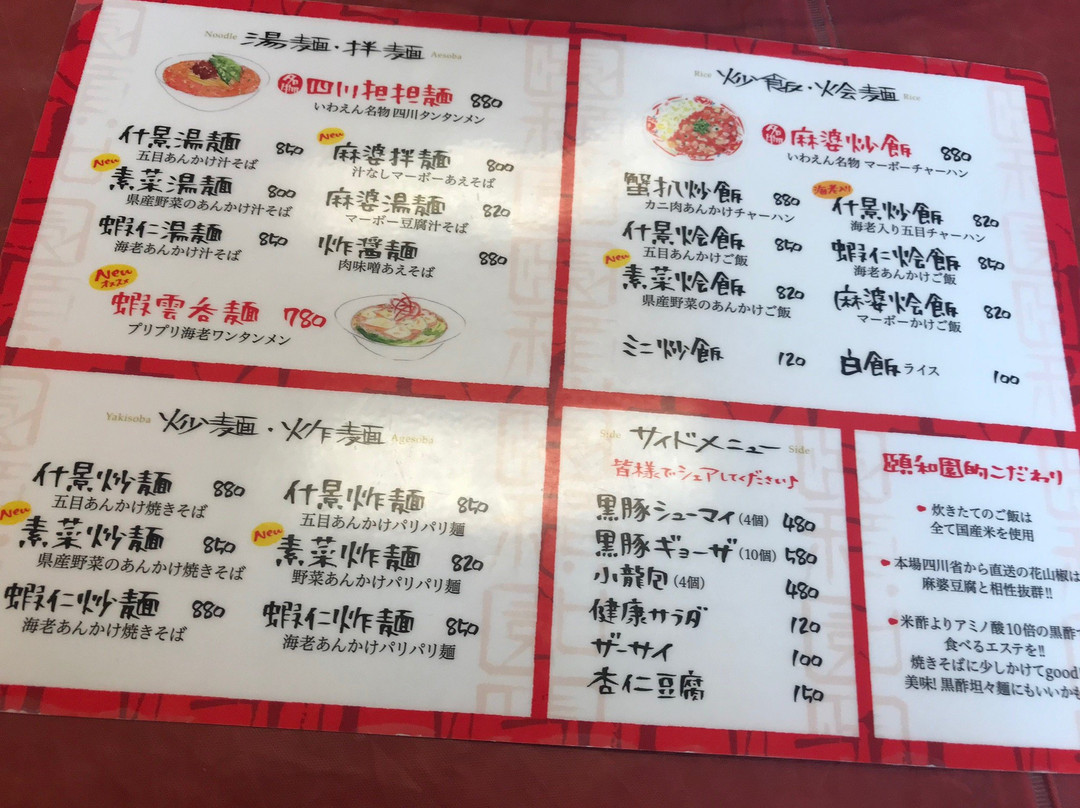 Noodle 湯麺・拌麺 Aesoba
名物 四川担担麺 880
いわえん名物 四川タンタンメン
什景湯麺 850
五目あんかけ汁そば
New
素菜湯麺 800
県産野菜のあんかけ汁そば
蝦仁湯麺 850
海老あんかけ汁そば
New
麻婆拌麺 800
汁なしマーボーあえそば
麻婆湯麺 820
マーボー豆腐汁そば
炸醤麺 880
肉味噌あえそば
New
オススメ
蝦雲呑麺 780
プリプリ海老ワンタンメン
Rice 炒飯・烩麺 Rice
名物 麻婆炒飯 880
いわえん名物 マーボーチャーハン
蟹扒炒飯 880
カニ肉あんかけチャーハン
什景烩飯 850
五目あんかけご飯
New
素菜烩飯 820
県産野菜のあんかけご飯
ミニ炒飯 120
海老入り
什景炒飯 820
海老入り五目チャーハン
蝦仁烩飯 850
海老あんかけご飯
麻婆烩飯 820
マーボーかけご飯
白飯 ライス 100
Yakisoba 炒麺・炸麺 Agesoba
什景炒麺 880
五目あんかけ焼きそば
New
素菜炒麺 850
県産野菜のあんかけ焼きそば
蝦仁炒麺 880
海老あんかけ焼きそば
什景炸麺 850
五目あんかけパリパリ麺
New
素菜炸麺 820
野菜あんかけパリパリ麺
蝦仁炸麺 850
海老あんかけパリパリ麺
Side サイドメニュー Side
皆様でシェアしてください♪
黒豚シューマイ(4個) 480
黒豚ギョーザ(10個) 580
小龍包(4個) 480
健康サラダ 120
ザーサイ 100
杏仁豆腐 150
頤和園的こだわり
炊きたてのご飯は
全て国産米を使用
本場四川省から直送の花山椒は
麻婆豆腐と相性抜群!!
米酢よりアミノ酸10倍の黒酢で
食べるエステを!!
焼きそばに少しかけてgood
美味! 黒酢坦々麺にもいいかも